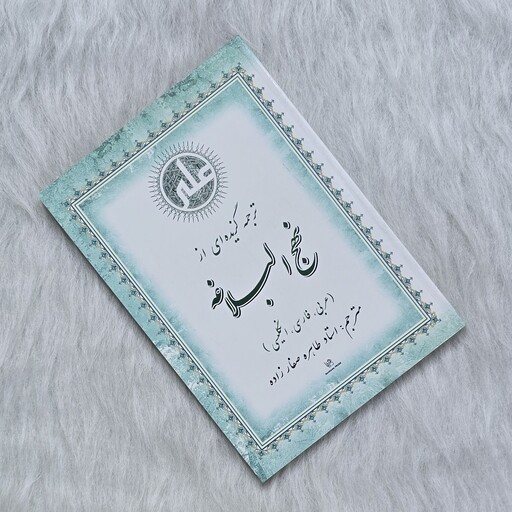 علی
ترجمه گزیده‌ای از
نهج البلاغه
(عربی، فارسی، انگلیسی)
مترجم: استاد طاهره صفارزاده